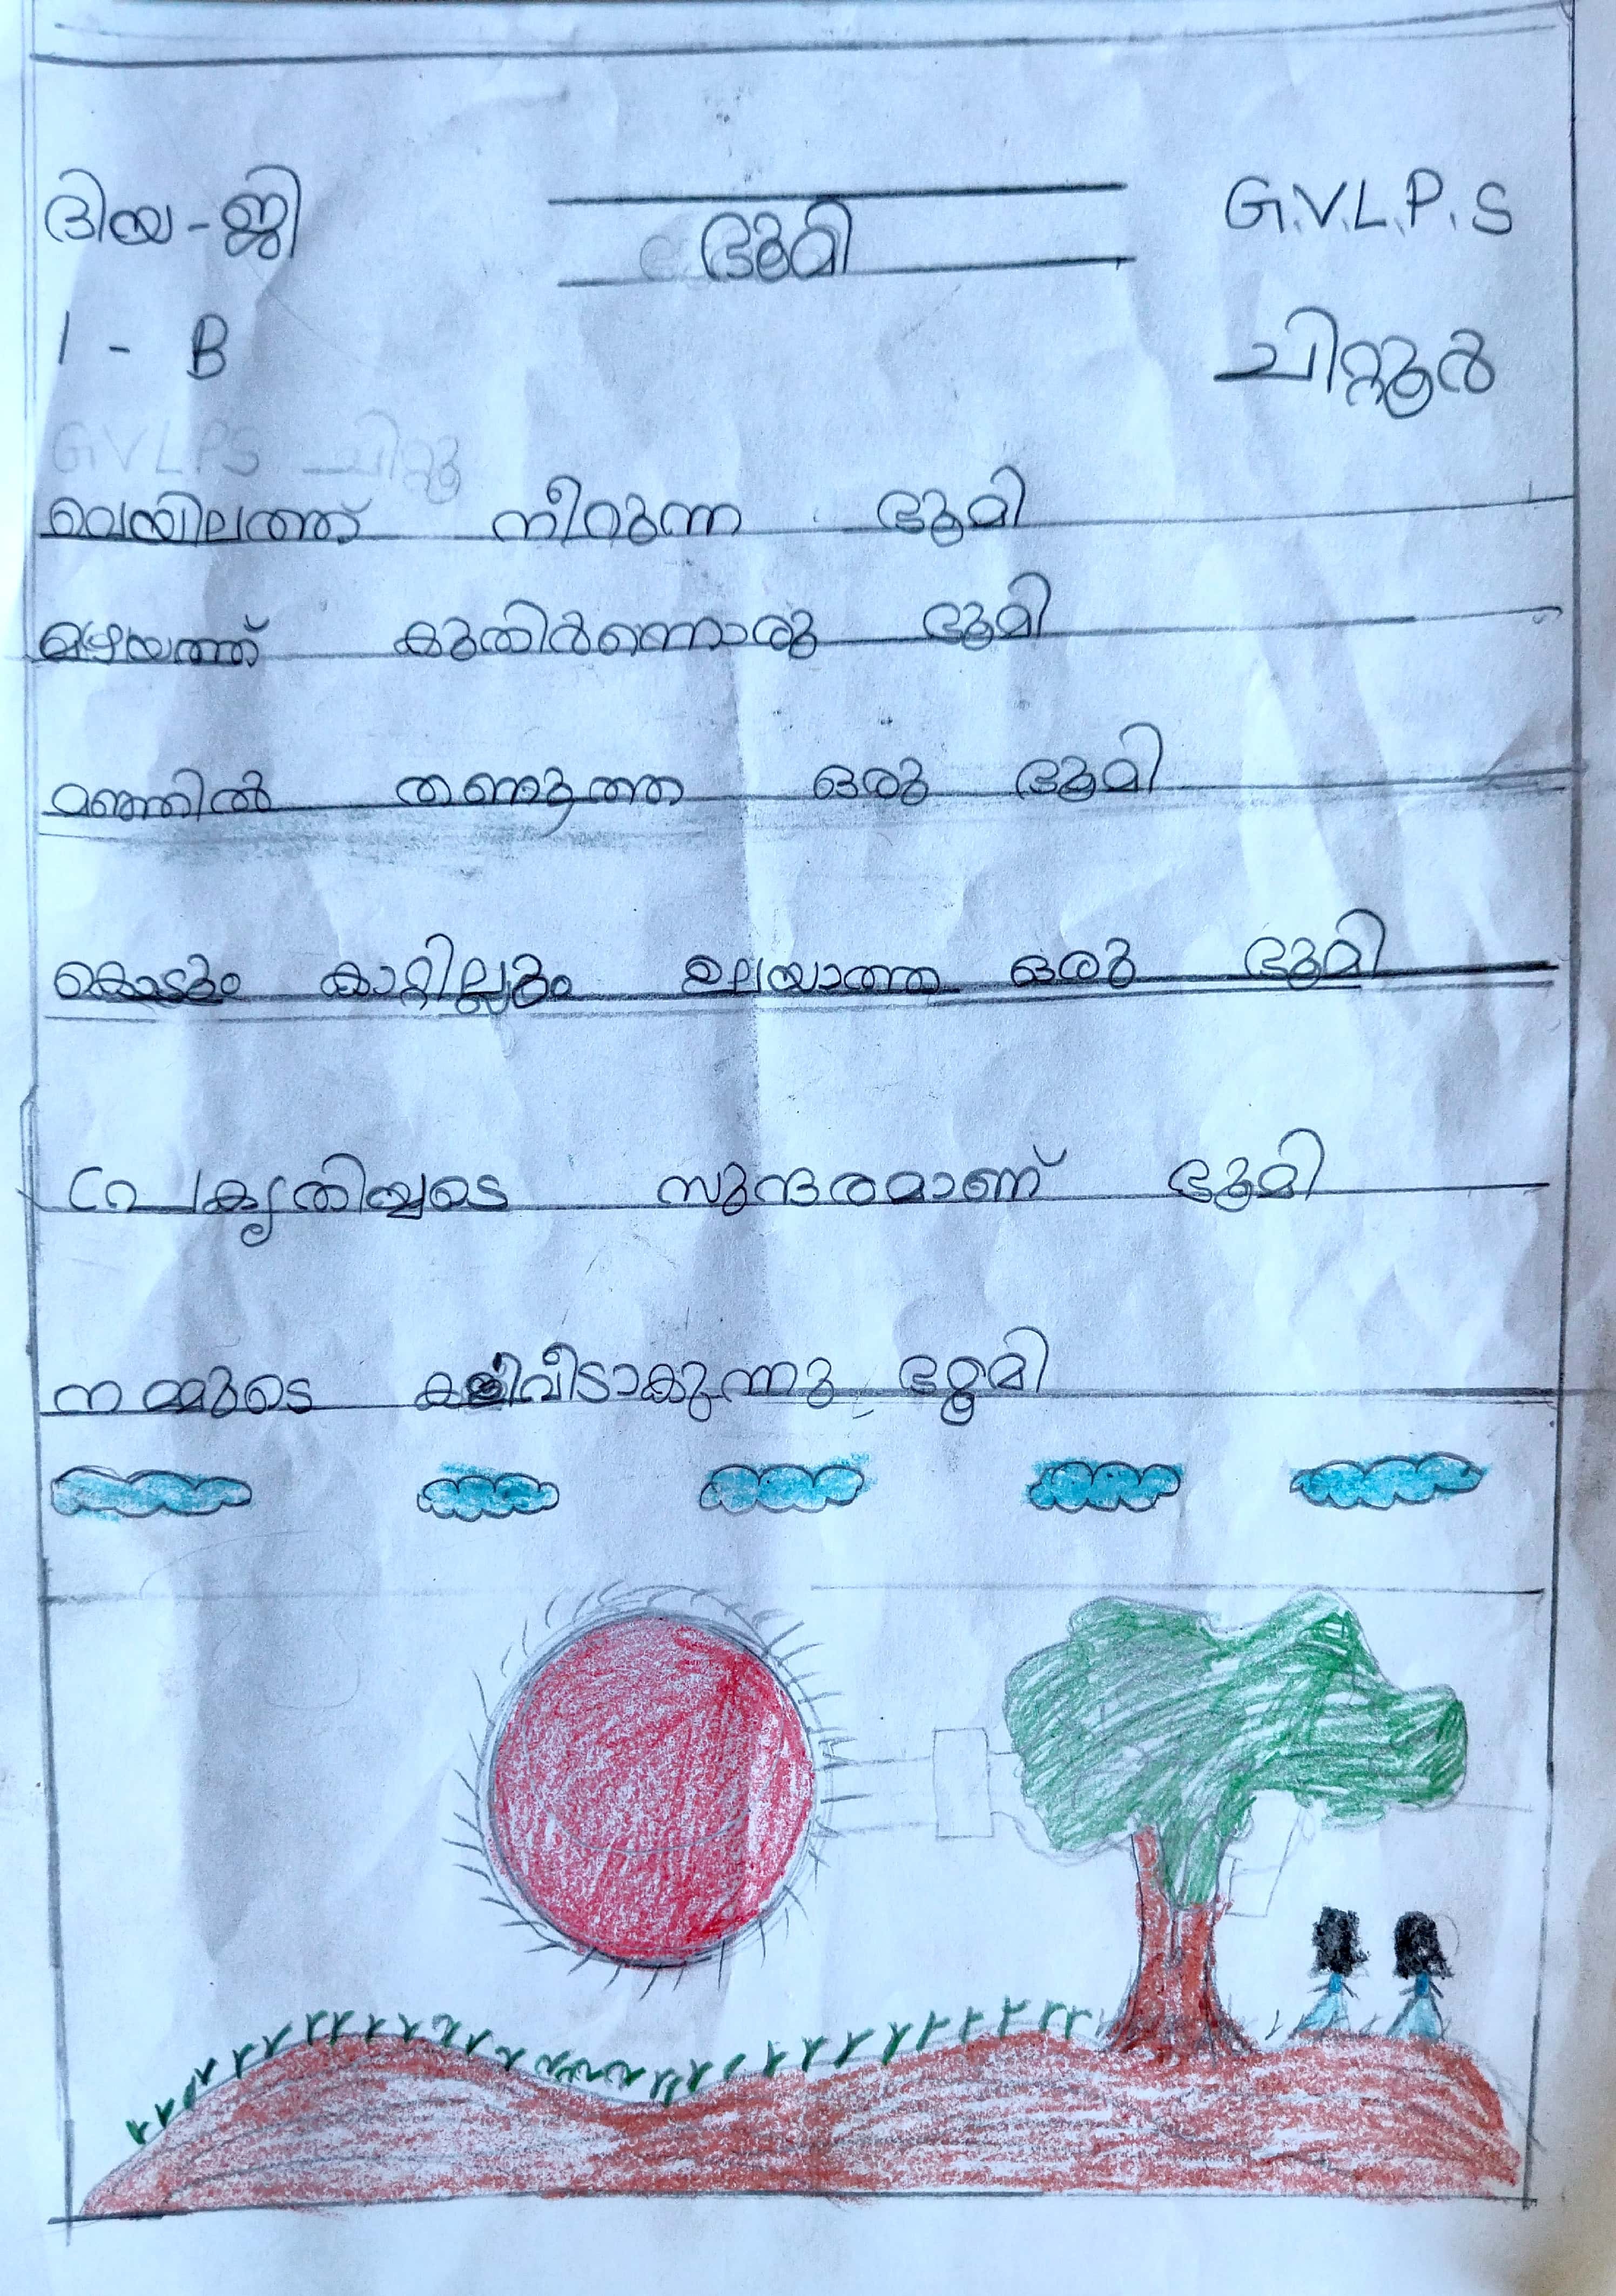 ദിയ-ജി ഭൂമി G.V.L.P.S
1 - B ചിറ്റൂർ
GVLPS ചിറ്റൂ
വെയിലത്ത് നീറുന്ന ഭൂമി
മഴയത്ത് കുതിർന്നൊരു ഭൂമി
മഞ്ഞിൽ തണുത്ത ഒരു ഭൂമി
കൊടും കാറ്റില്ലും ഉലയാത്ത ഒരു ഭൂമി
പ്രകൃതിയുടെ സുന്ദരമാണ് ഭൂമി
നമ്മുടെ കളിവീടാകുന്നു ഭൂമി